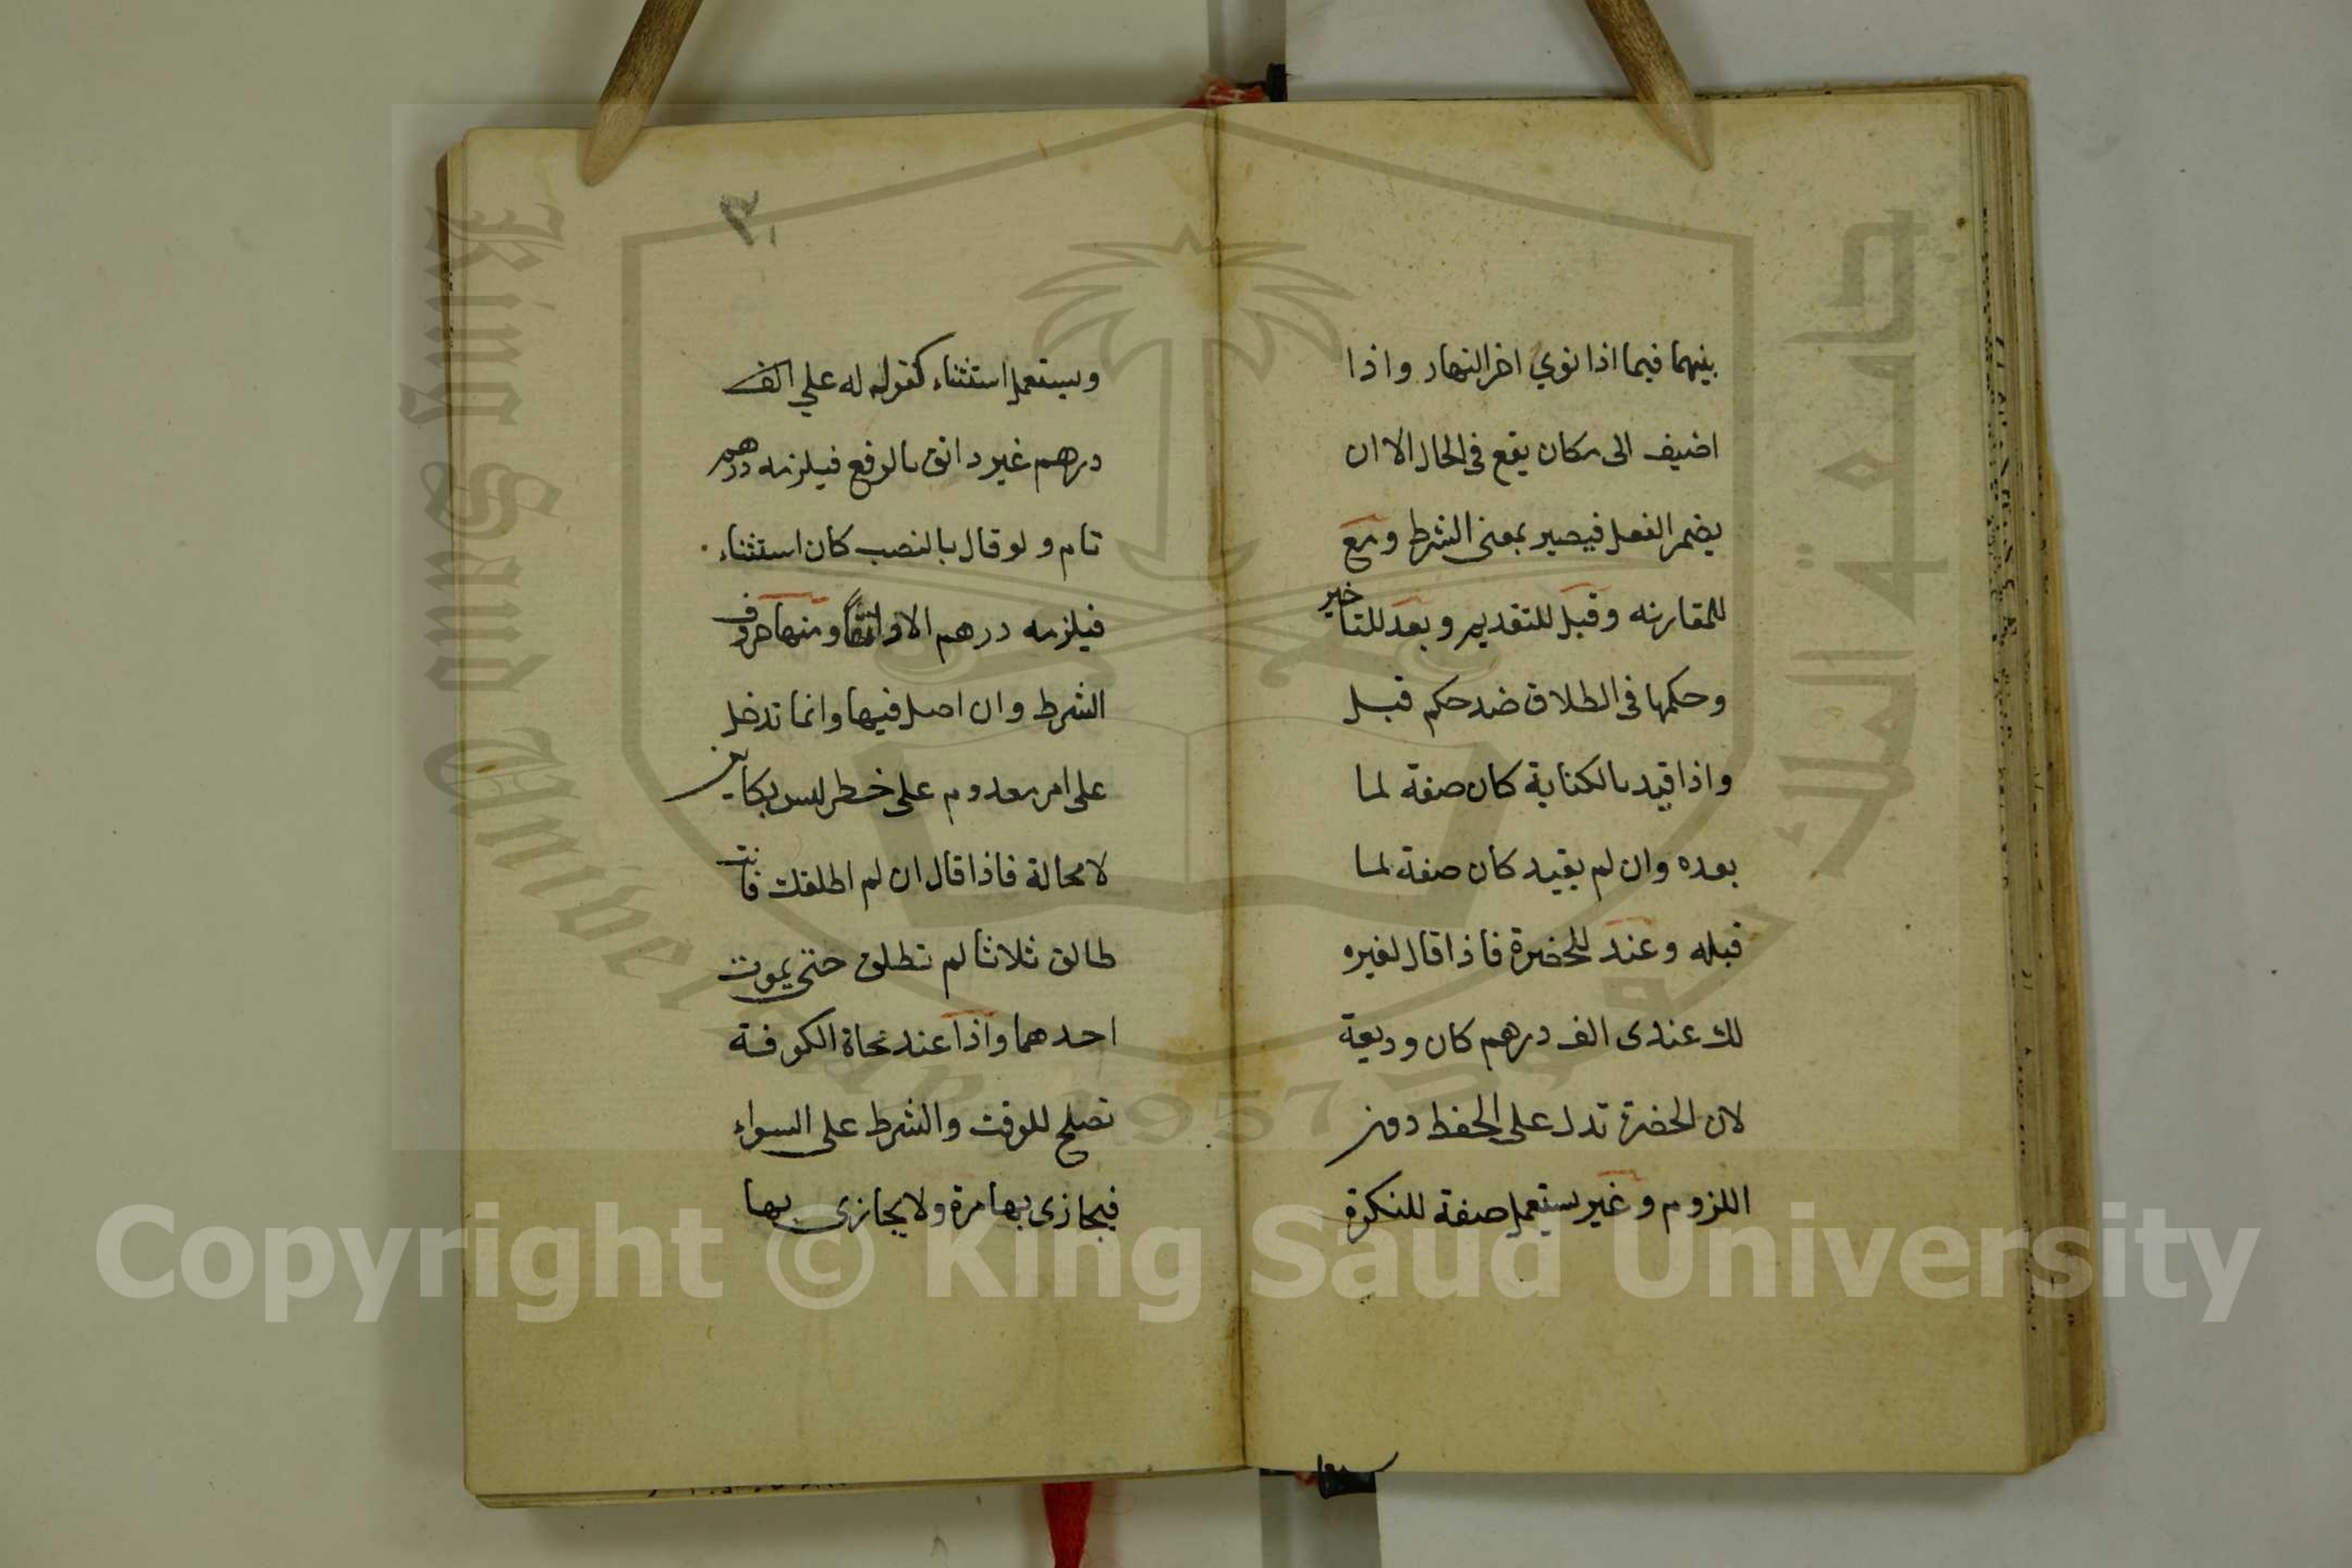 بينهما فيما اذا نوي اخر النهار واذا
اضيف الى مكان يقع فى الحال الا ان
يضمر الفعل فيصير بمعنى الشرط ومع
للمقارنه وقبل للتقديم وبعد للتاخير
وحكمها فى الطلاق ضد حكم قبل
واذا قيد بالكناية كان صفة لما
بعده وان لم يقيد كان صفة لما
قبله وعند للحضرة فاذا قال لغيره
لك عندى الف درهم كان وديعة
لان الحضرة تدل على الحفظ دون
اللزوم وغير يستعمل صفة للنكرة
ويستعمل استثناء كقوله له علي الف
درهم غير دانق بالرفع فيلزمه درهم
تام ولو قال بالنصب كان استثناء
فيلزمه درهم الا دانقا ومنها حروف
الشرط وان اصل فيها وانما تدخل
على امر معدوم على خطر ليس بكاين
لا محالة فاذا قال ان لم اطلقك فانت
طالق ثلاثا لم تطلق حتى يموت
احدهما واذا عند نحاة الكوفة
تصلح للوقت والشرط على السواء
فيجازى بها مرة ولا يجازى بها
King Saud University
جامعة الملك سعود
1957
Copyright © King Saud University